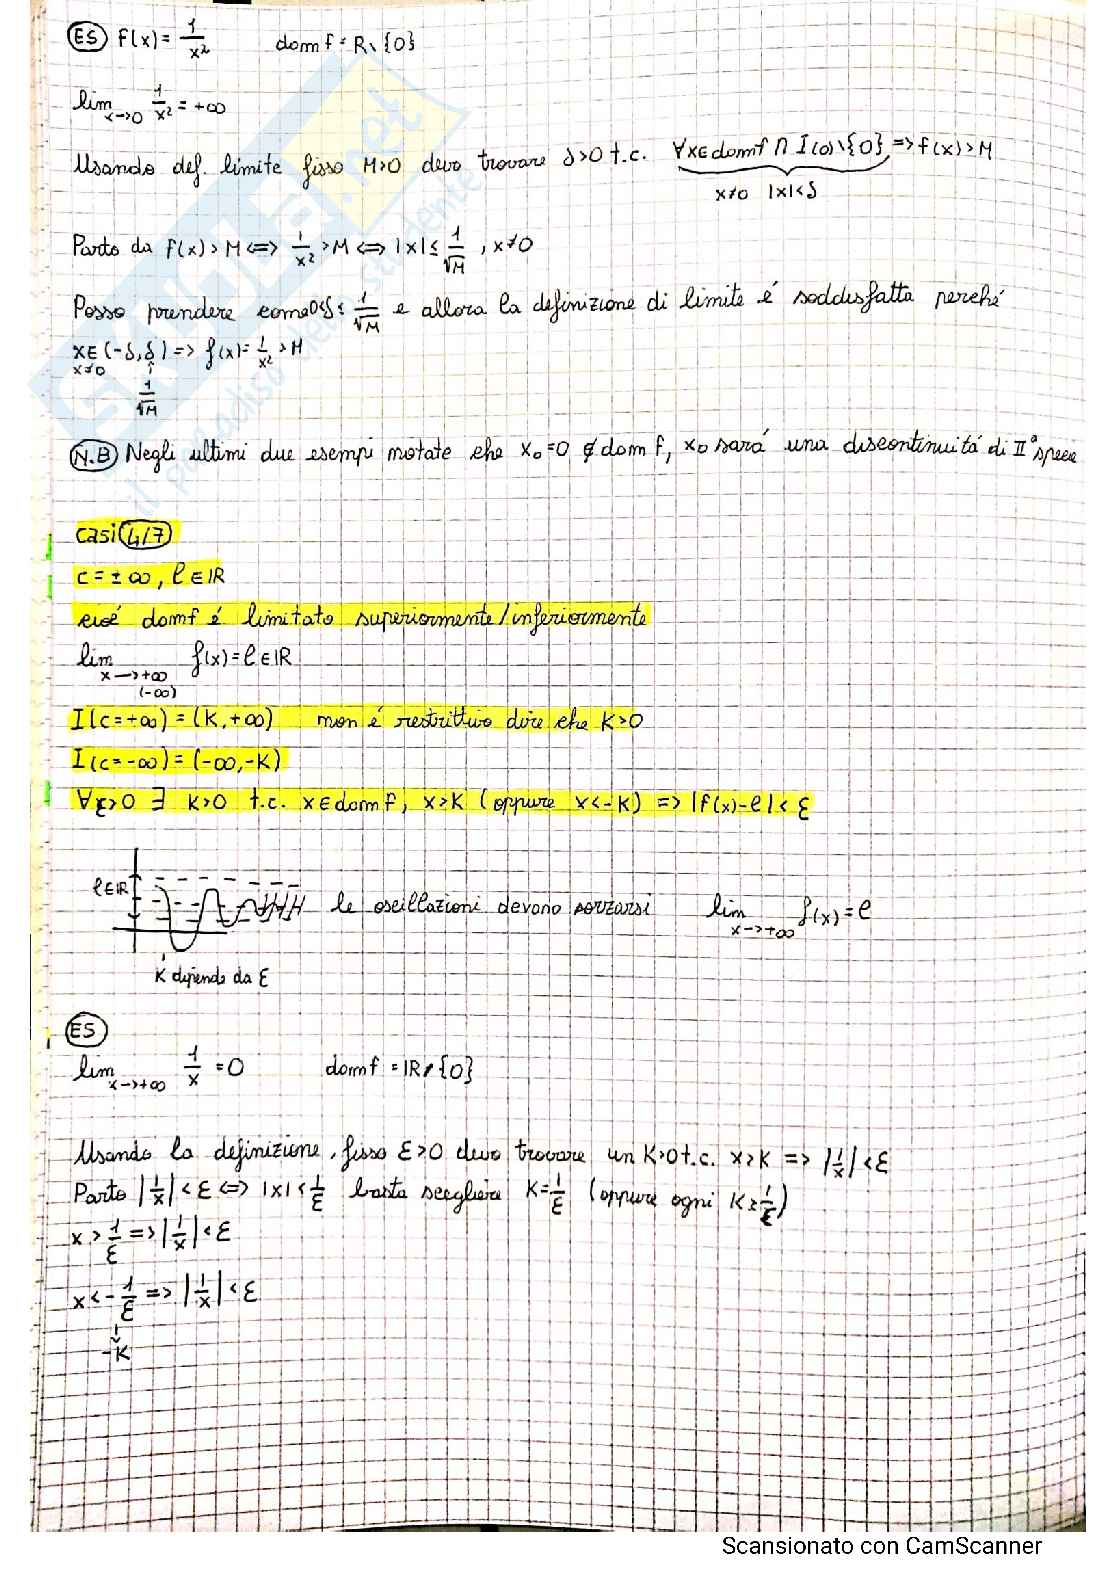 ES f(x)= 1/x² domf = R\{0}
lim x->0 1/x² = +∞
Usando def. limite fisso M>0 devo trovare δ>0 t.c. ∀x∈domf ∩ I(0)\{0} => f(x)>M
x≠0 |x|<δ
Parto da f(x)>M <=> 1/x² >M <=> |x| ≤ 1/√M , x≠0
Posso prendere come 0<δ≤ 1/√M e allora la definizione di limite é soddisfatta perché
x∈(-δ,δ) => f(x)= 1/x² >M
x≠0
1/√M
N.B Negli ultimi due esempi notate che x₀=0 ∉ dom f, x₀ sará una discontinuitá di IIª specie
casi 4/7
c = ± ∞, l ∈ IR
cioé domf é limitato superiormente/inferiormente
lim x->+∞ f(x)=l∈IR
(-∞)
I(c=+∞) = (K,+∞) non é restrittivo dire che K>0
I(c=-∞)=(-∞,-K)
∀ε>0 ∃ K>0 t.c. x∈domf, x>K (oppure x<-K) => |f(x)-l|< ε
l∈IR le oscillazioni devono smorzarsi lim x->+∞ f(x)=l
K dipende da ε
ES
lim x->+∞ 1/x =0 domf = IR\{0}
Usando la definizione, fisso ε>0 devo trovare un K>0 t.c. x>K => |1/x| <ε
Parto |1/x| <ε <=> |x| < 1/ε basta scegliere K= 1/ε (oppure ogni K≥ 1/ε)
x> 1/ε => |1/x| <ε
x<- 1/ε => |1/x| <ε
-K
Scansionato con CamScanner
skuola.net
il paradiso dello studente